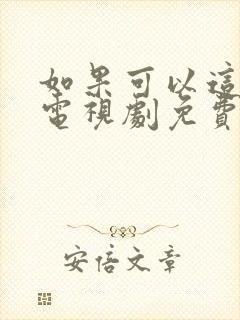 如果可以這
電視劇免費
安信文章